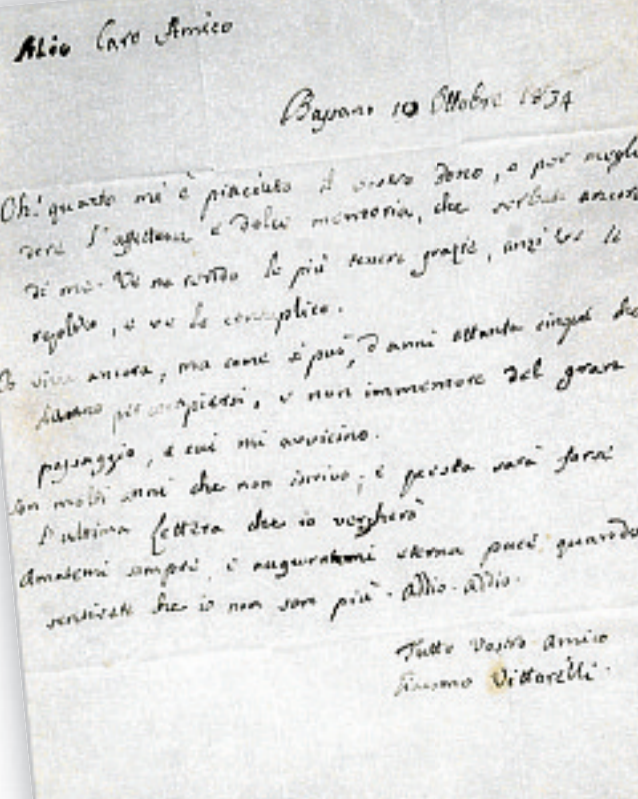 Mio Caro Amico
Bassano 10 Ottobre 1834
Oh! quanto mi è piaciuto il vostro dono, e per
l'affettuosa e dolce memoria, che serbate ancora
di me. Ve ne rendo le più tenere grazie, anzi ve le
replico, e ve le
vivo ancora, ma come si può, d'anni ottanta cinque che
per e non immemore del gran
passaggio, a cui mi avvicino.
Son molti anni che non scrivo; e questa sarà forse
l'ultima lettera che io vergherò
Amatemi sempre, e auguratemi eterna pace quando
sentirete che io non son più. Addio. Addio.
Tutto Vostro Amico
Vittorelli.